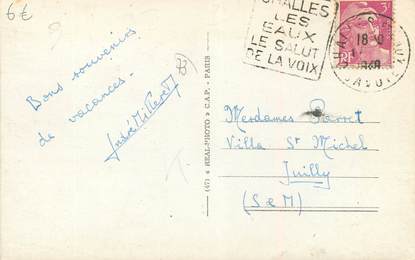 6€
CHALLES
LES
EAUX
LE SALUT
DE LA VOIX
18-
3F
SAVOIE
73
Bons souvenirs
de vacances -
(47) « REAL-PHOTO » C.A.P. - PARIS
Mesdames Barret
Villa St Michel
Juilly
(S & M)